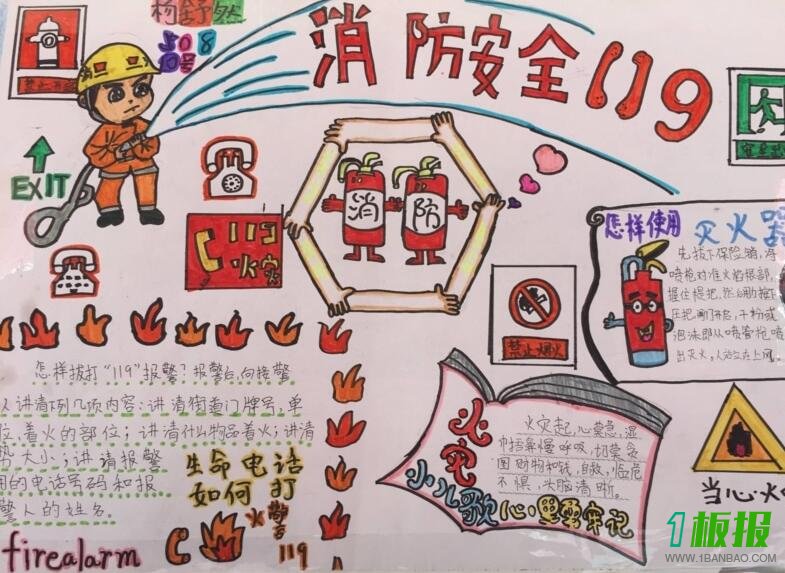 杨舒然
消防安全119
禁止
EXIT
119
火灾
消 防
怎样使用 灭火器
先拔下保险销,将
喷枪对准火焰根部,
握住提把,然后用力按下
压把,阀门开启,干粉或
泡沫即从喷管枪喷
出灭火,人站立在上风。
禁止烟火
怎样拔打“119”报警?报警后,向接警
人讲清下列几项内容:讲清街道门牌号,单
位,着火的部位;讲清什么物品着火;讲清
势大小;讲请报警
用的电话号码和报
警人的姓名。
生命电话
如何打
火警
119
firealarm
火灾
小儿歌
心里要牢记
火灾起,心莫急,湿
巾捂鼻慢呼吸,切莫贪
图财物和钱,自救,临危
不惧,头脑清晰。
当心火
1板报
WWW.1BANBAO.COM